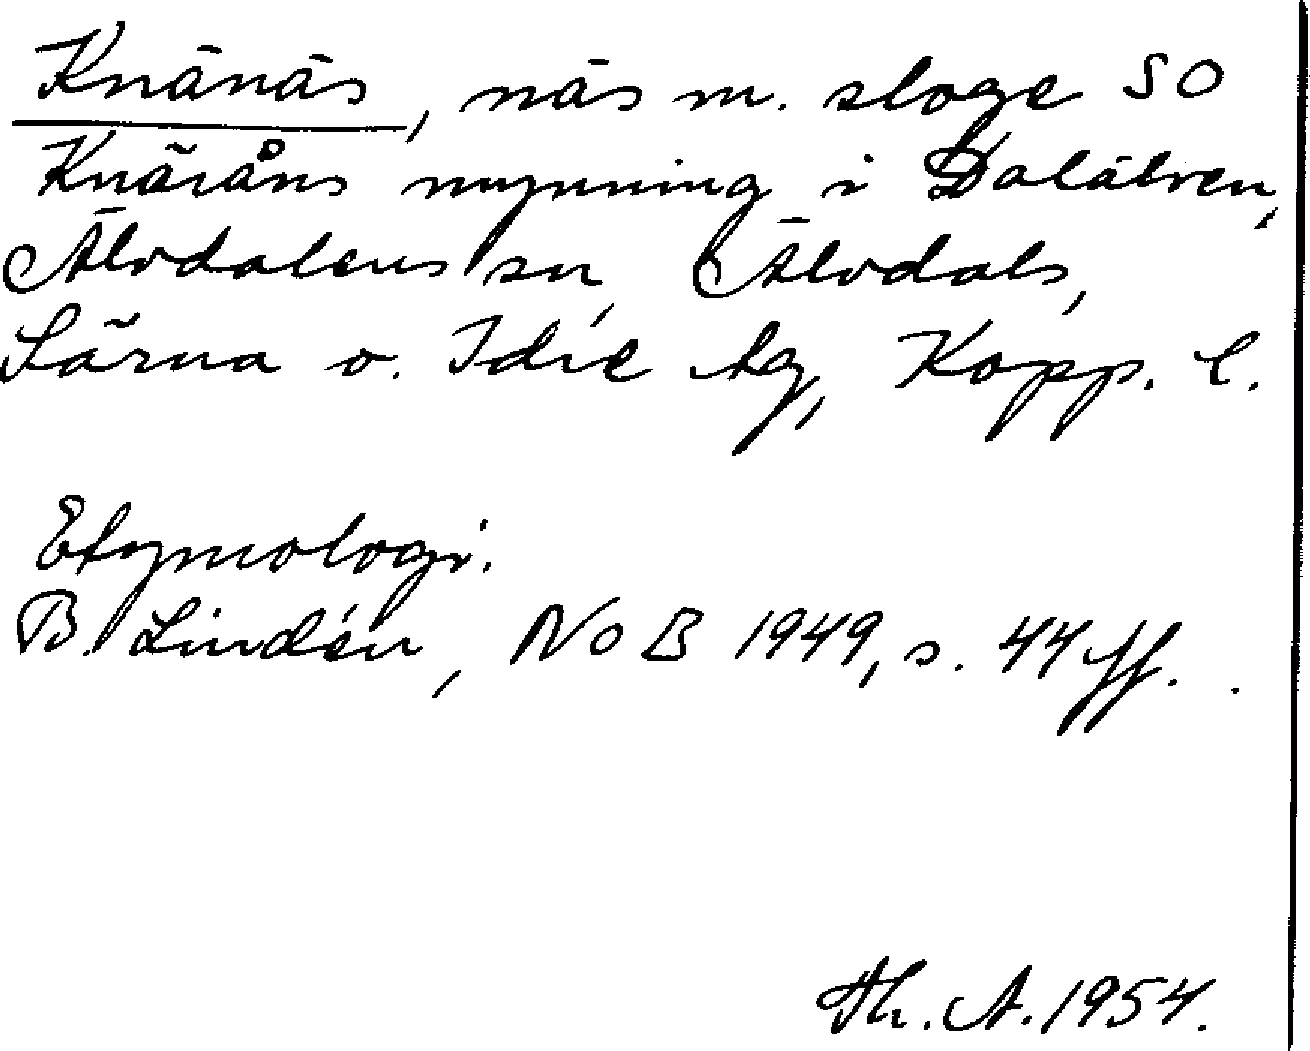 Knänäs, näs m. sloge SO
Knäråns mynning i Dalälven,
Älvdalens sn, Älvdals,
Särna o. Idre tg, Kopp. l.
Etymologi.
B. Lindén, NoB 1949, s. 44 ff.
Th. A. 1954.